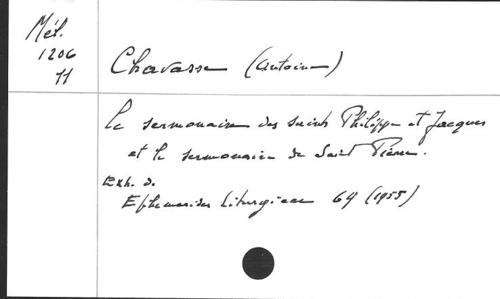 Mél.
1206
11
Chavasse (Antoine)
Le sermonaire des saints Philippe et Jacques
et le sermonaire de Saint Pierre.
Extr. de
Ephemerides Liturgicae 69 (1955)